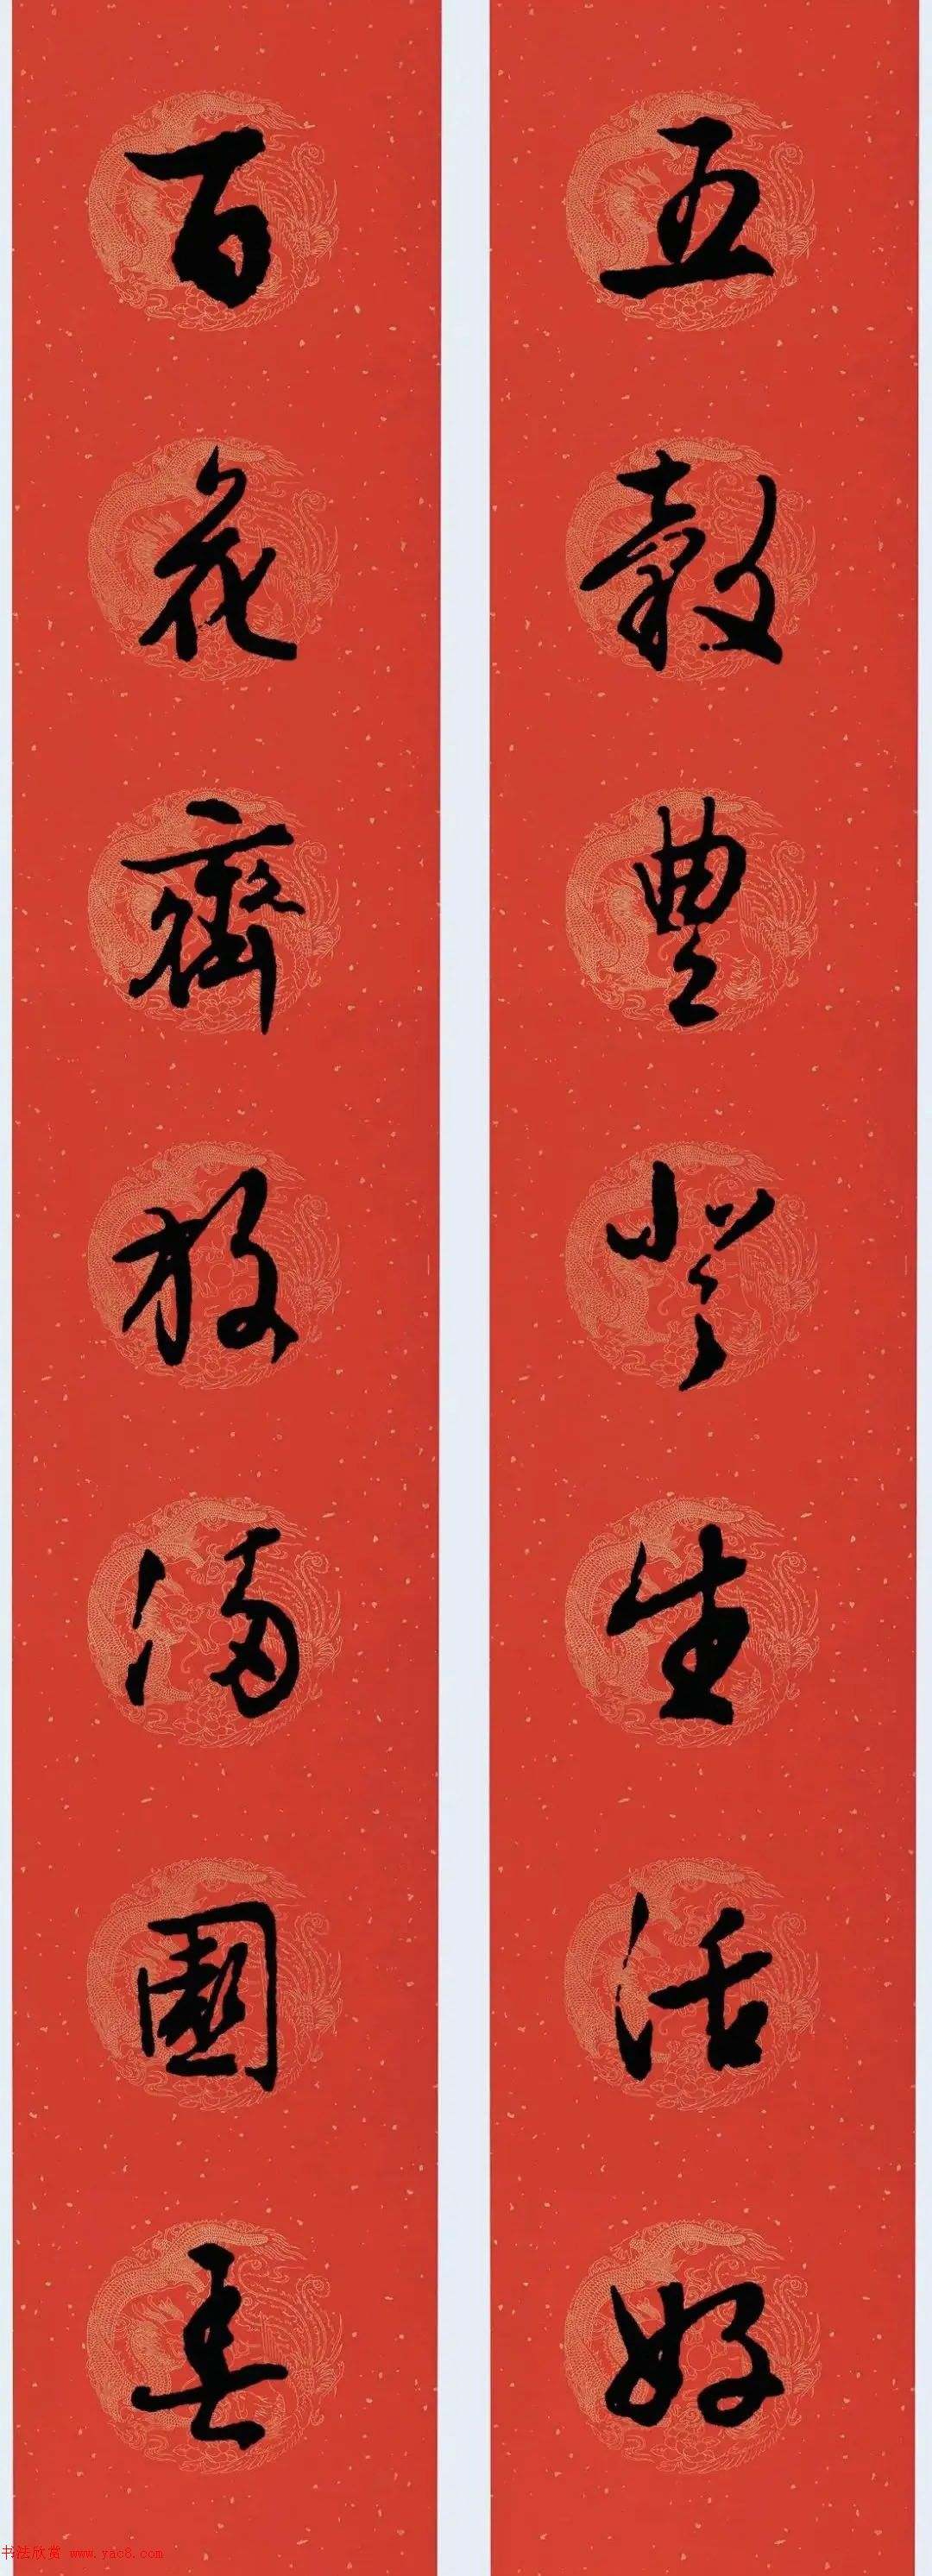 五穀豐登生活好
百花齊放滿園春
书法欣赏 www.yac8.com